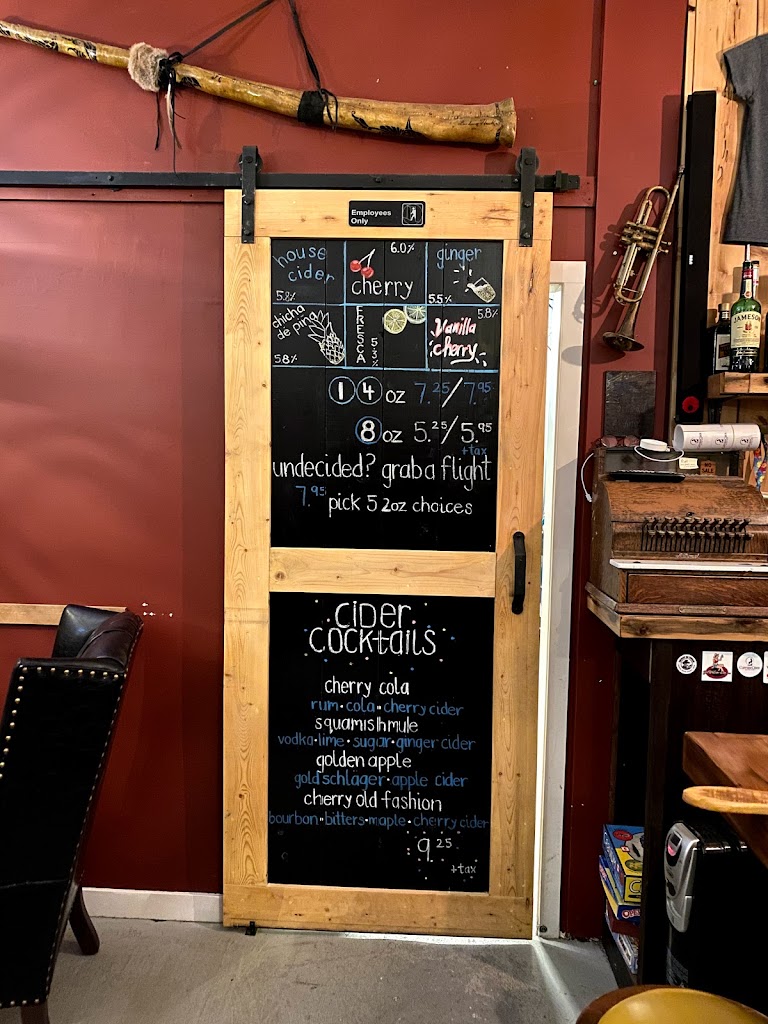 Employees
Only
house
cider
5.8%
6.0%
cherry
ginger
5.5%
chicha
de piña
5.8%
FRESCA
5.3%
5.8%
Vanilla
cherry
14 oz 7.25/7.95
8 oz 5.25/5.95
+tax
undecided? grab a flight
7.95 pick 5 2oz choices
CIDER
COCKTAILS
cherry cola
rum · cola · cherry cider
squamish mule
vodka · lime · sugar · ginger cider
golden apple
goldschläger · apple cider
cherry old fashion
bourbon · bitters · maple · cherry cider
9.25
+tax
JAMESON
NO
SALE